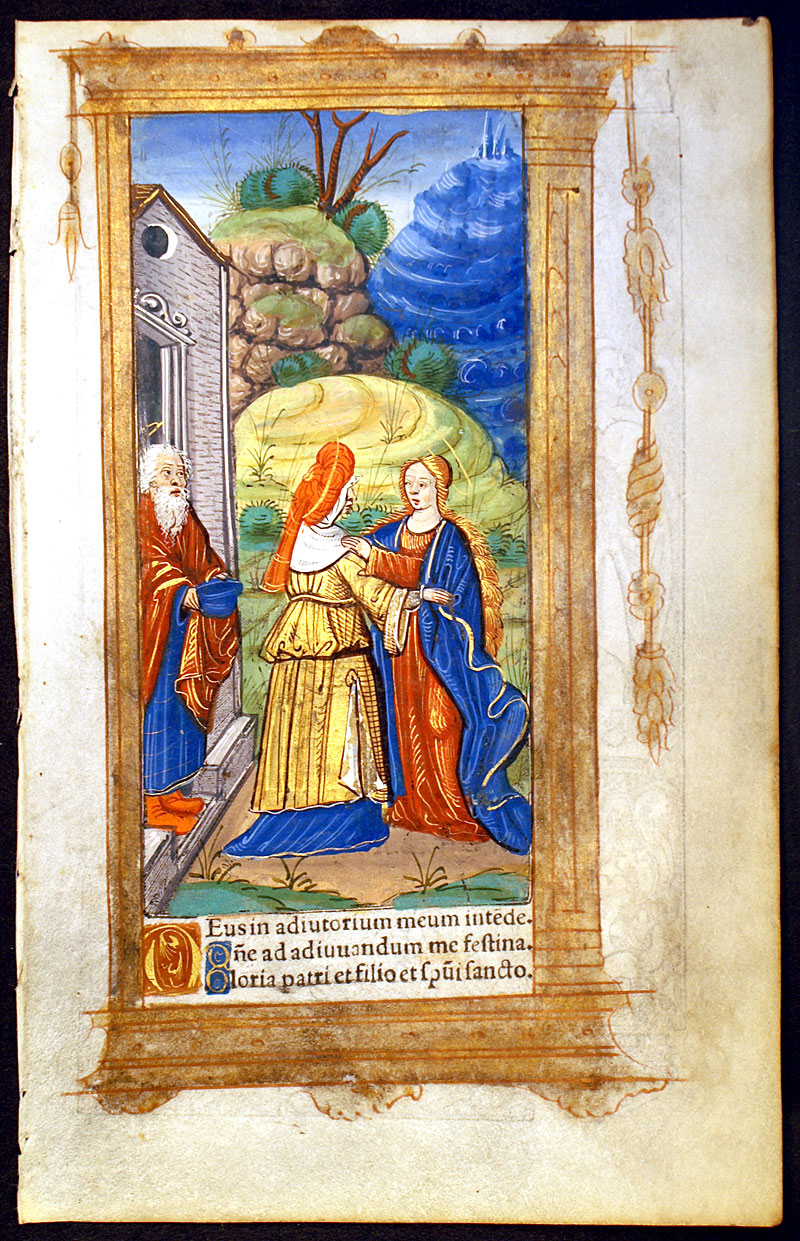 Deus in adiutorium meum intēde.
Dñe ad adiuuandum me festina.
Gloria patri et filio et spūi sancto.